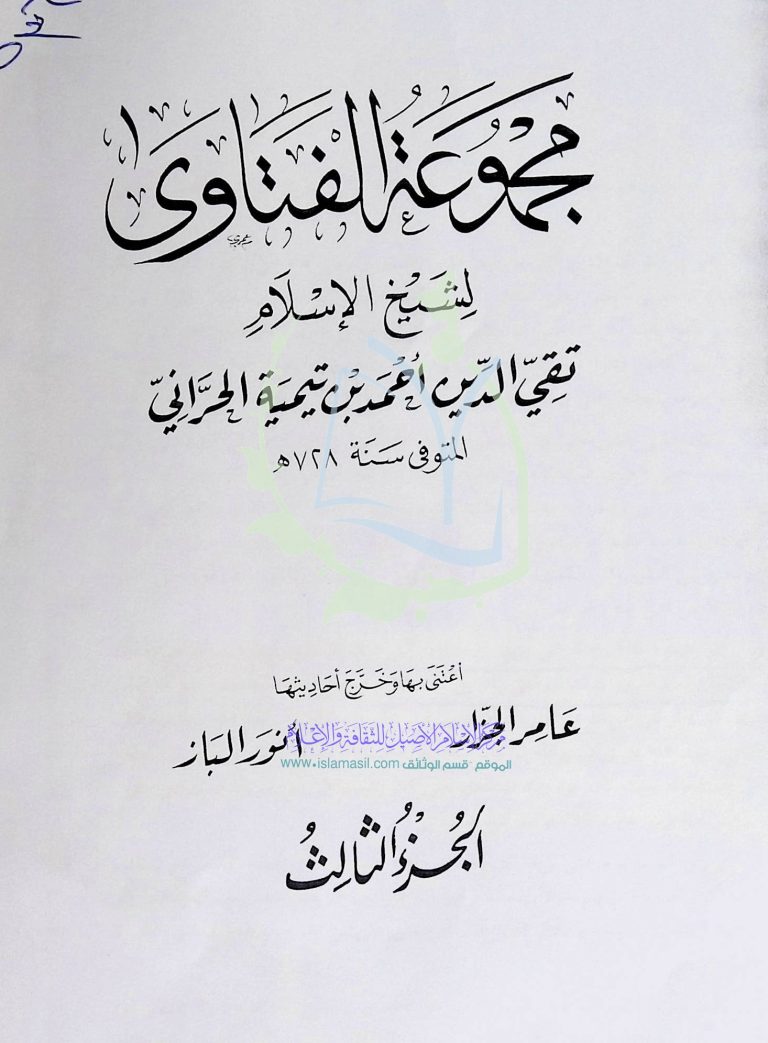 مجموعة الفتاوى
لِشَيْخ الإِسْلَامِ
تَقِيّ الدِّين أَحْمَد بْن تيمية الحَرَّانِيّ
المتوفى سَنَة ٧٢٨ هـ
اعْتَنَى بِهَا وَخَرَّجَ أحَادِيثهَا
عَامِر الجَزَّار أنوَر البَاز
مركز الإسلام الأصيل للثقافة والإعلام
الموقع - قسم الوثائق www.islamasil.com
الجُزْءُ الثَّالِثُ